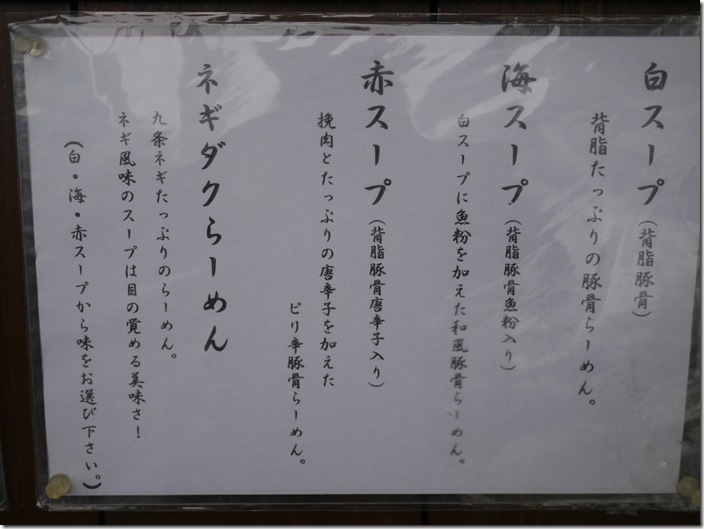 白スープ（背脂豚骨）
背脂たっぷりの豚骨らーめん。
海スープ（背脂豚骨魚粉入り）
白スープに魚粉を加えた和風豚骨らーめん。
赤スープ（背脂豚骨唐辛子入り）
挽肉とたっぷりの唐辛子を加えた
ピリ辛豚骨らーめん。
ネギダクらーめん
九条ネギたっぷりのらーめん。
ネギ風味のスープは目の覚める美味さ！
（白・海・赤スープから味をお選び下さい。）